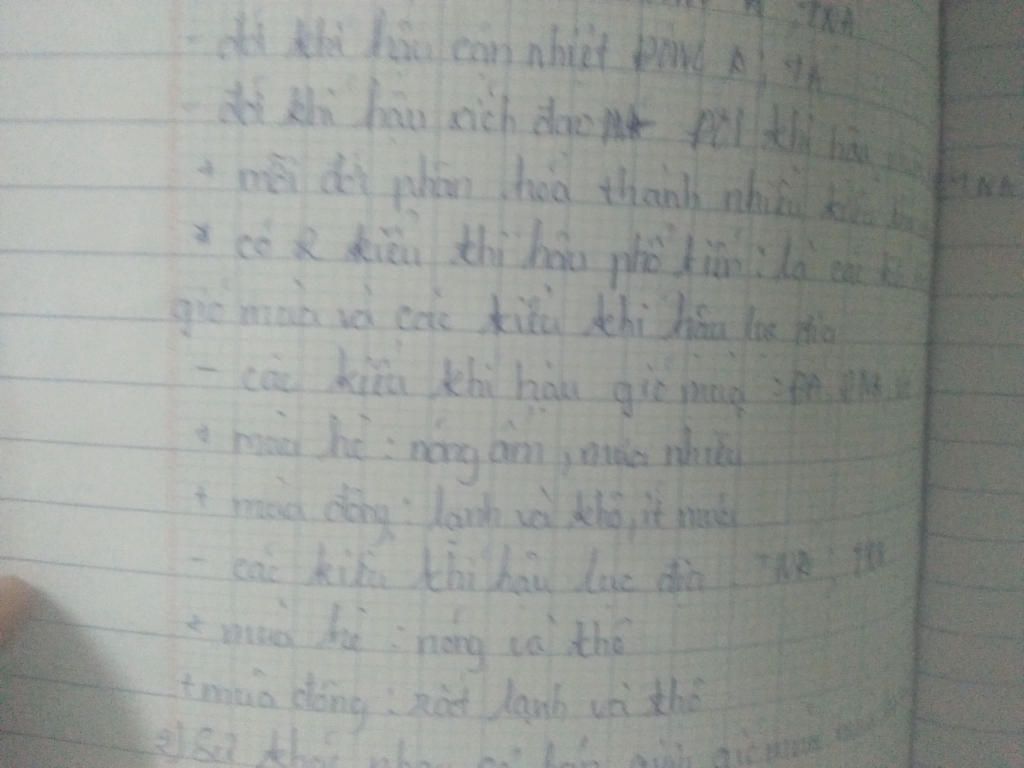 TKA
- đới khí hậu cận nhiệt ĐÔNG A, TA
- đới khí hậu xích đạo khí hậu
+ mỗi đới phân hóa thành nhiều kiểu
* có 2 kiểu khí hậu phổ biến: là các
gió mùa và các kiểu khí hậu lục địa
- các kiểu khí hậu gió mùa: ĐA
+ mùa hè: nóng ẩm, mưa nhiều
+ mùa đông: lạnh và khô, ít mưa
- các kiểu khí hậu lục địa TNA
+ mùa hè: nóng và khô
+ mùa đông: rất lạnh và khô
2) Sự khác nhau gió mùa